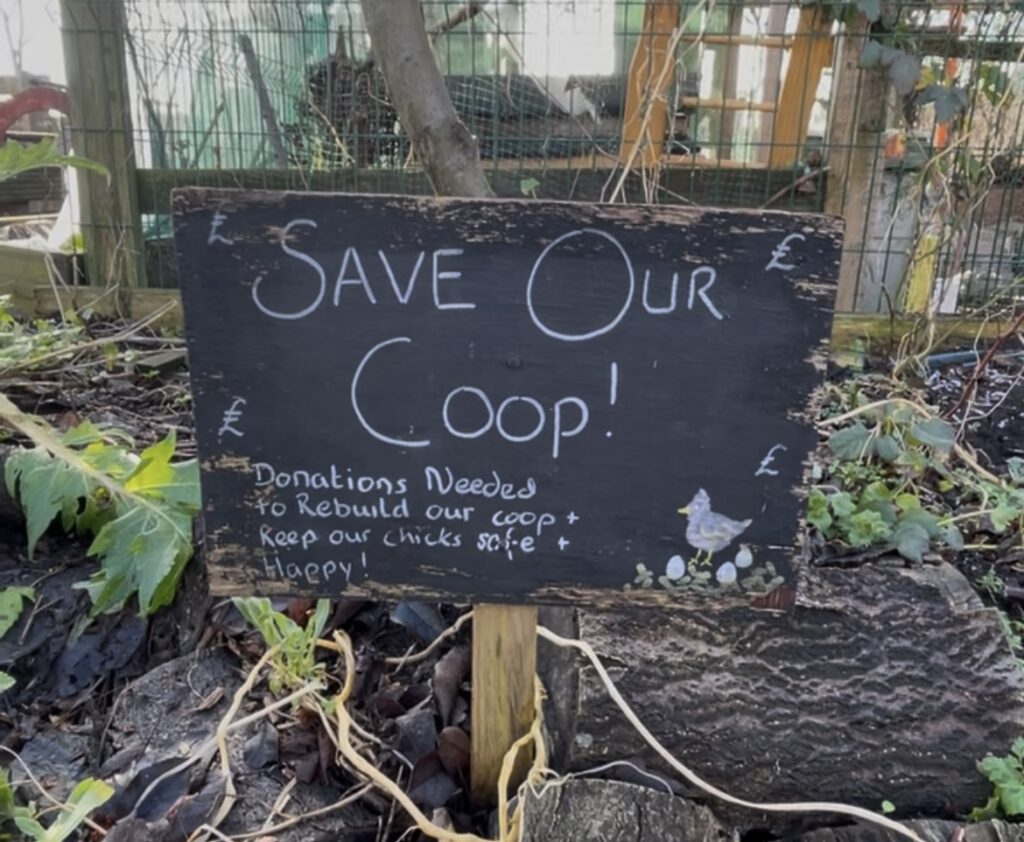 £ £
SAVE OUR
COOP!
£ £
Donations Needed
to Rebuild our coop +
Keep our chicks safe +
Happy!